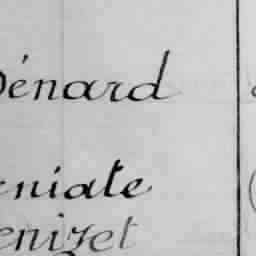 Dénard
eniate
enizet